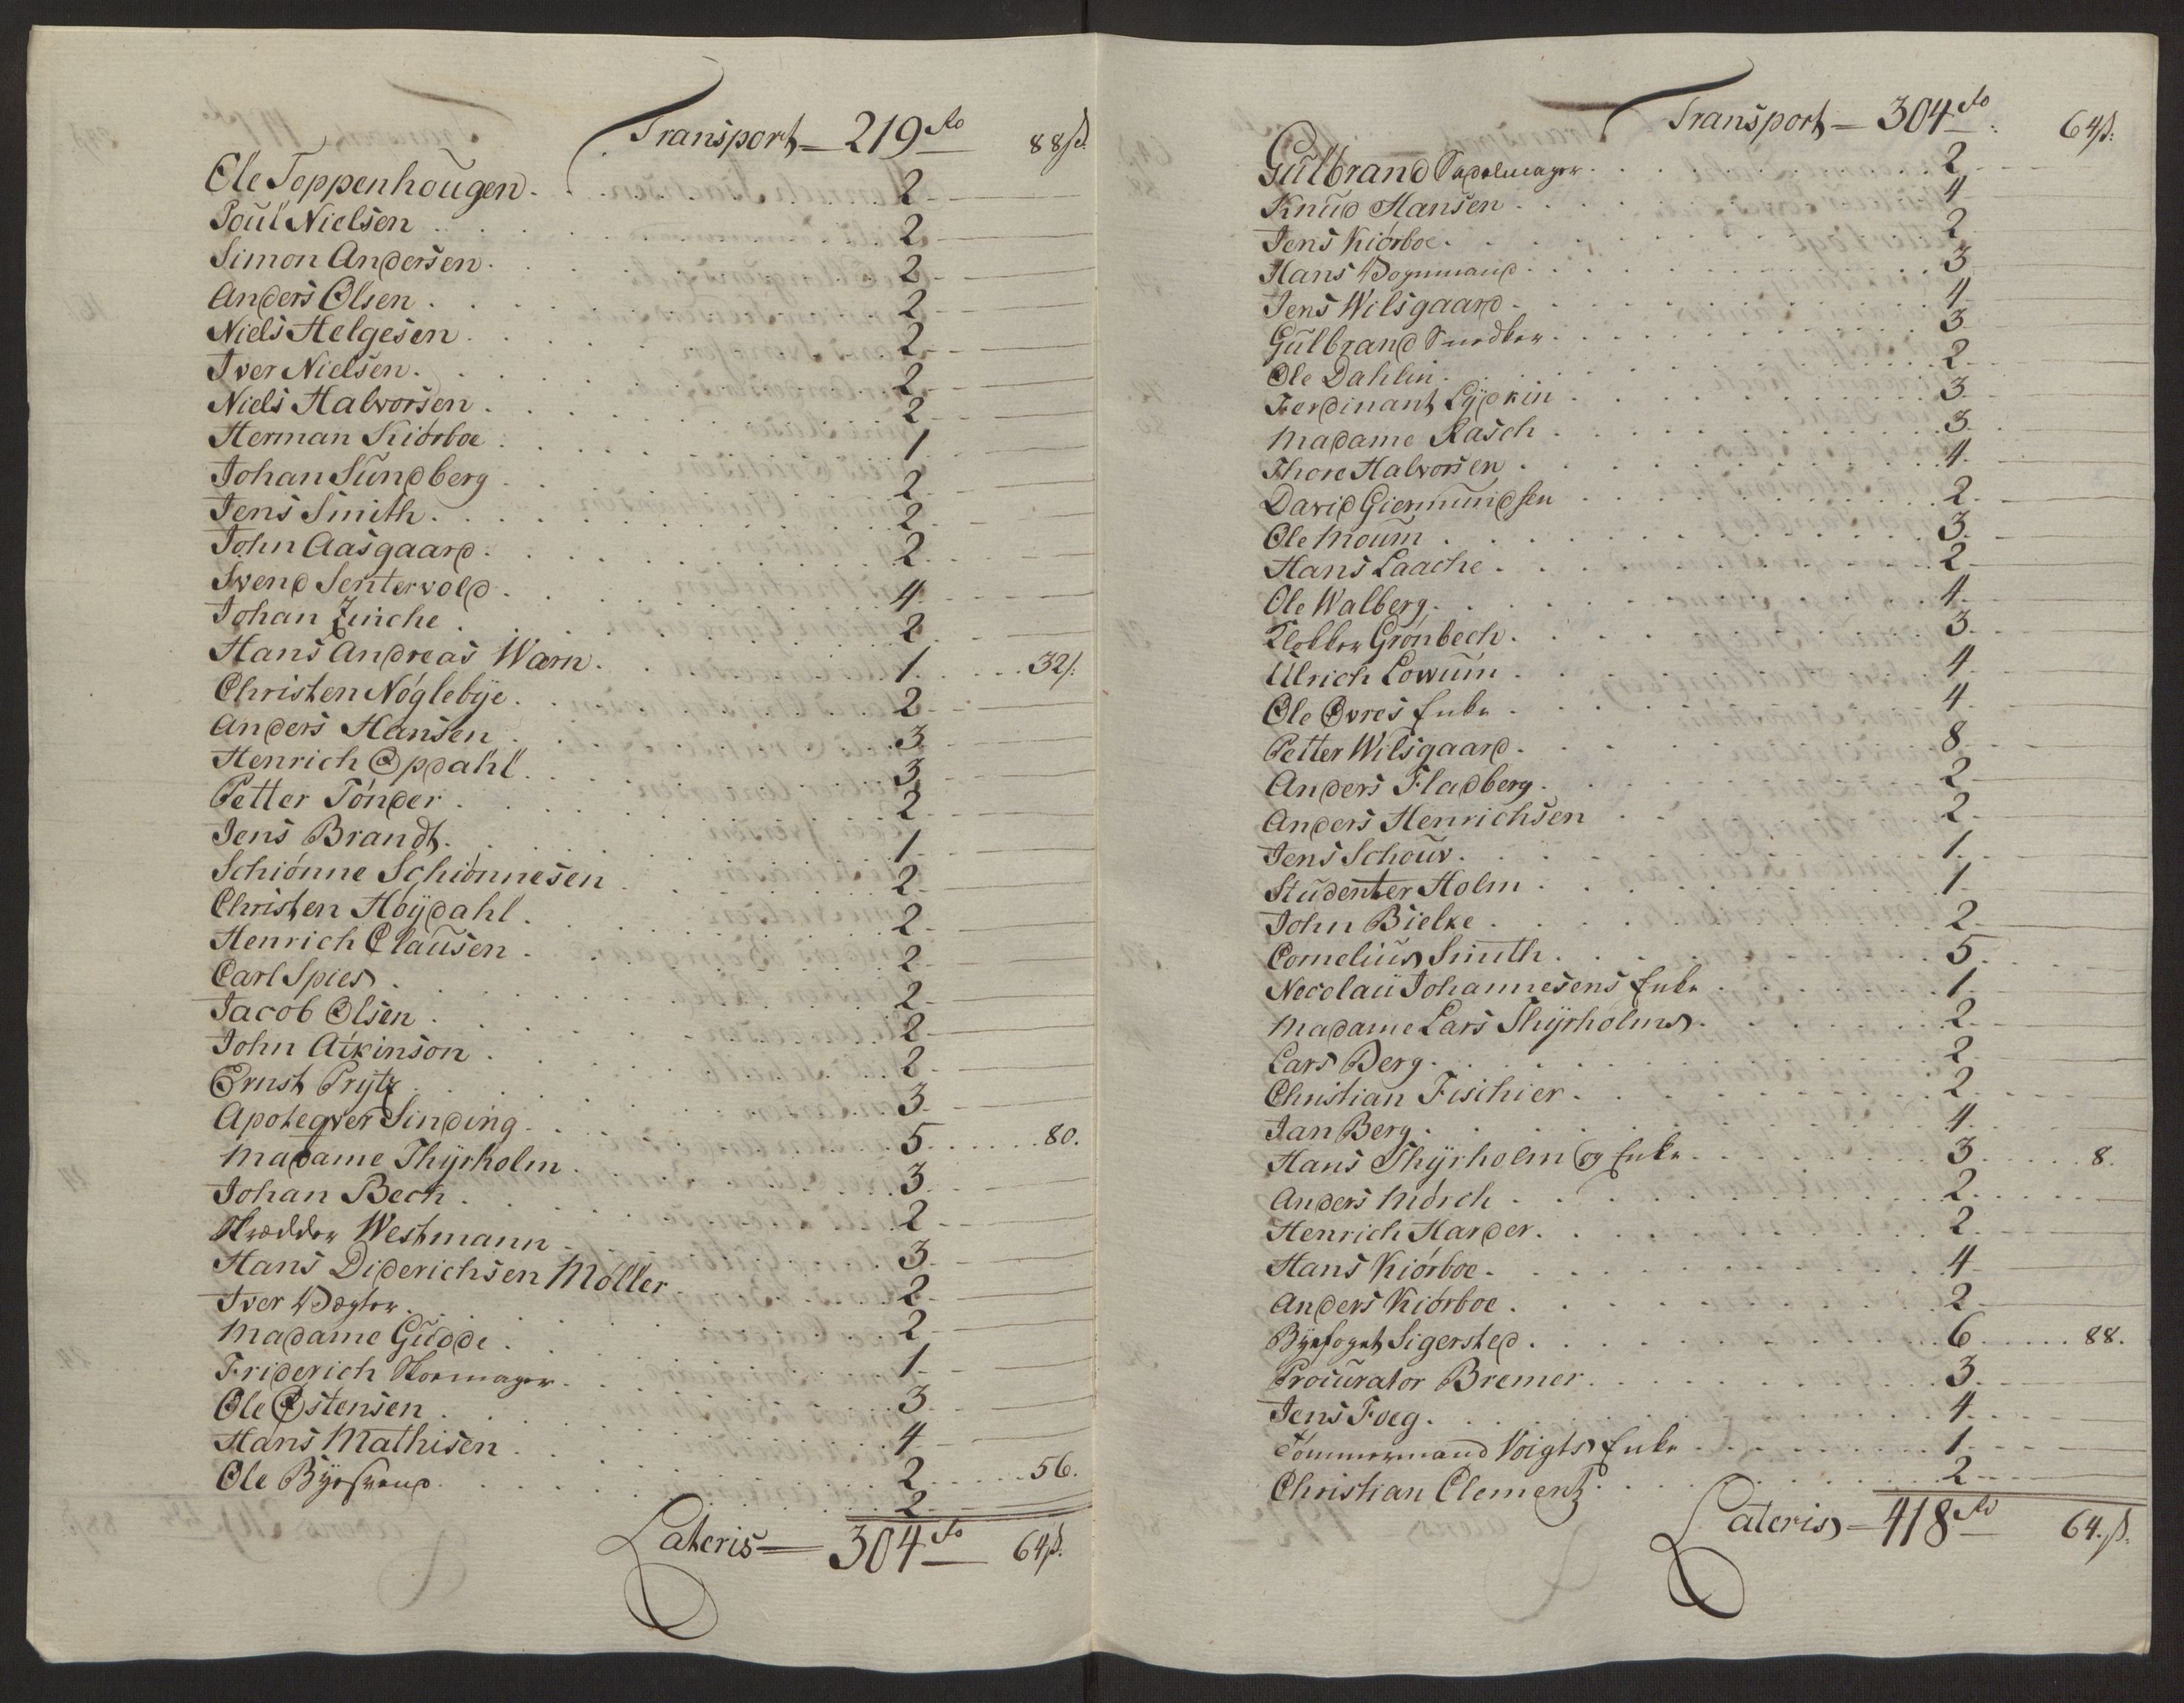 Transport 219 rd 88 ß
Ole Toppenhougen 2
Poul Nielsen 2
Simon Andersen 2
Anders Olsen 2
Niels Helgesen 2
Iver Nielsen 2
Niels Halvorsen 2
Herman Kiörboe 1
Johan Sundberg 2
Jens Smith 2
John Aasgaard 2
Svend Sentervold 4
Johan Zinche 2
Hans Andreas Warn 1 32 ß
Christen Nöglebÿe 2
Anders Hansen 3
Henrich Opdahl 3
Petter Tönder 2
Jens Brandt 1
Schiönne Schiönnesen 2
Christen Höÿdahl 2
Henrich Clausen 2
Carl Spies 2
Jacob Olsen 2
John Atkinson 2
Ernst Prÿtz 3
Apoteqver Sinding 5 80.
Madame Thÿrholm 3
Johan Bech 2
Skrædder Westmann 3
Hans Diderichsen Möller 2
Iver Vægter 2
Madame Gudde 1
Friderich Skomager 3
Ole Østensen 4
Hans Mathisen 2 56.
Ole Bÿesvend 2
Lateris 304 rd 64 ß
Transport 304 rd 64 ß
Gulbrand Sadelmager 2
Knud Hansen 4
Jens Kiörboe 2
Hans Vognmand 3
Jens Wilsgaard 4
Gulbrand Snedker 3
Ole Dahlin 2
Ferdinant Lÿdkin 3
Madame Rasch 3
Thore Halvorsen 4
David Giermundsen 2
Ole Moum 3
Hans Laache 2
Ole Walberg 4
Klokker Grönbech 3
Ulrich Lowum 4
Ole Ovres Enke 4
Petter Wilsgaard 8
Anders Fladberg 2
Anders Henrichsen 2
Jens Schouv 1
Studenter Holm 1
John Bielke 2
Cornelius Smith 5
Necolai Johannesens Enke 1
Madame Lars Thÿrholms 2
Lars Berg 2
Christian Fischier 2
Jan Berg 4
Hans Thÿrholm og Enke 3 8.
Anders Mörch 2
Henrich Harder 2
Hans Kiörboe 4
Anders Kiörboe 2
Bÿefoget Sigersted 6 88.
Procurator Bremer 3
Jens Foeg 4
Tömmermand Voigts Enke 1
Christian Clementz 2
Lateris 418 rd 64 ß